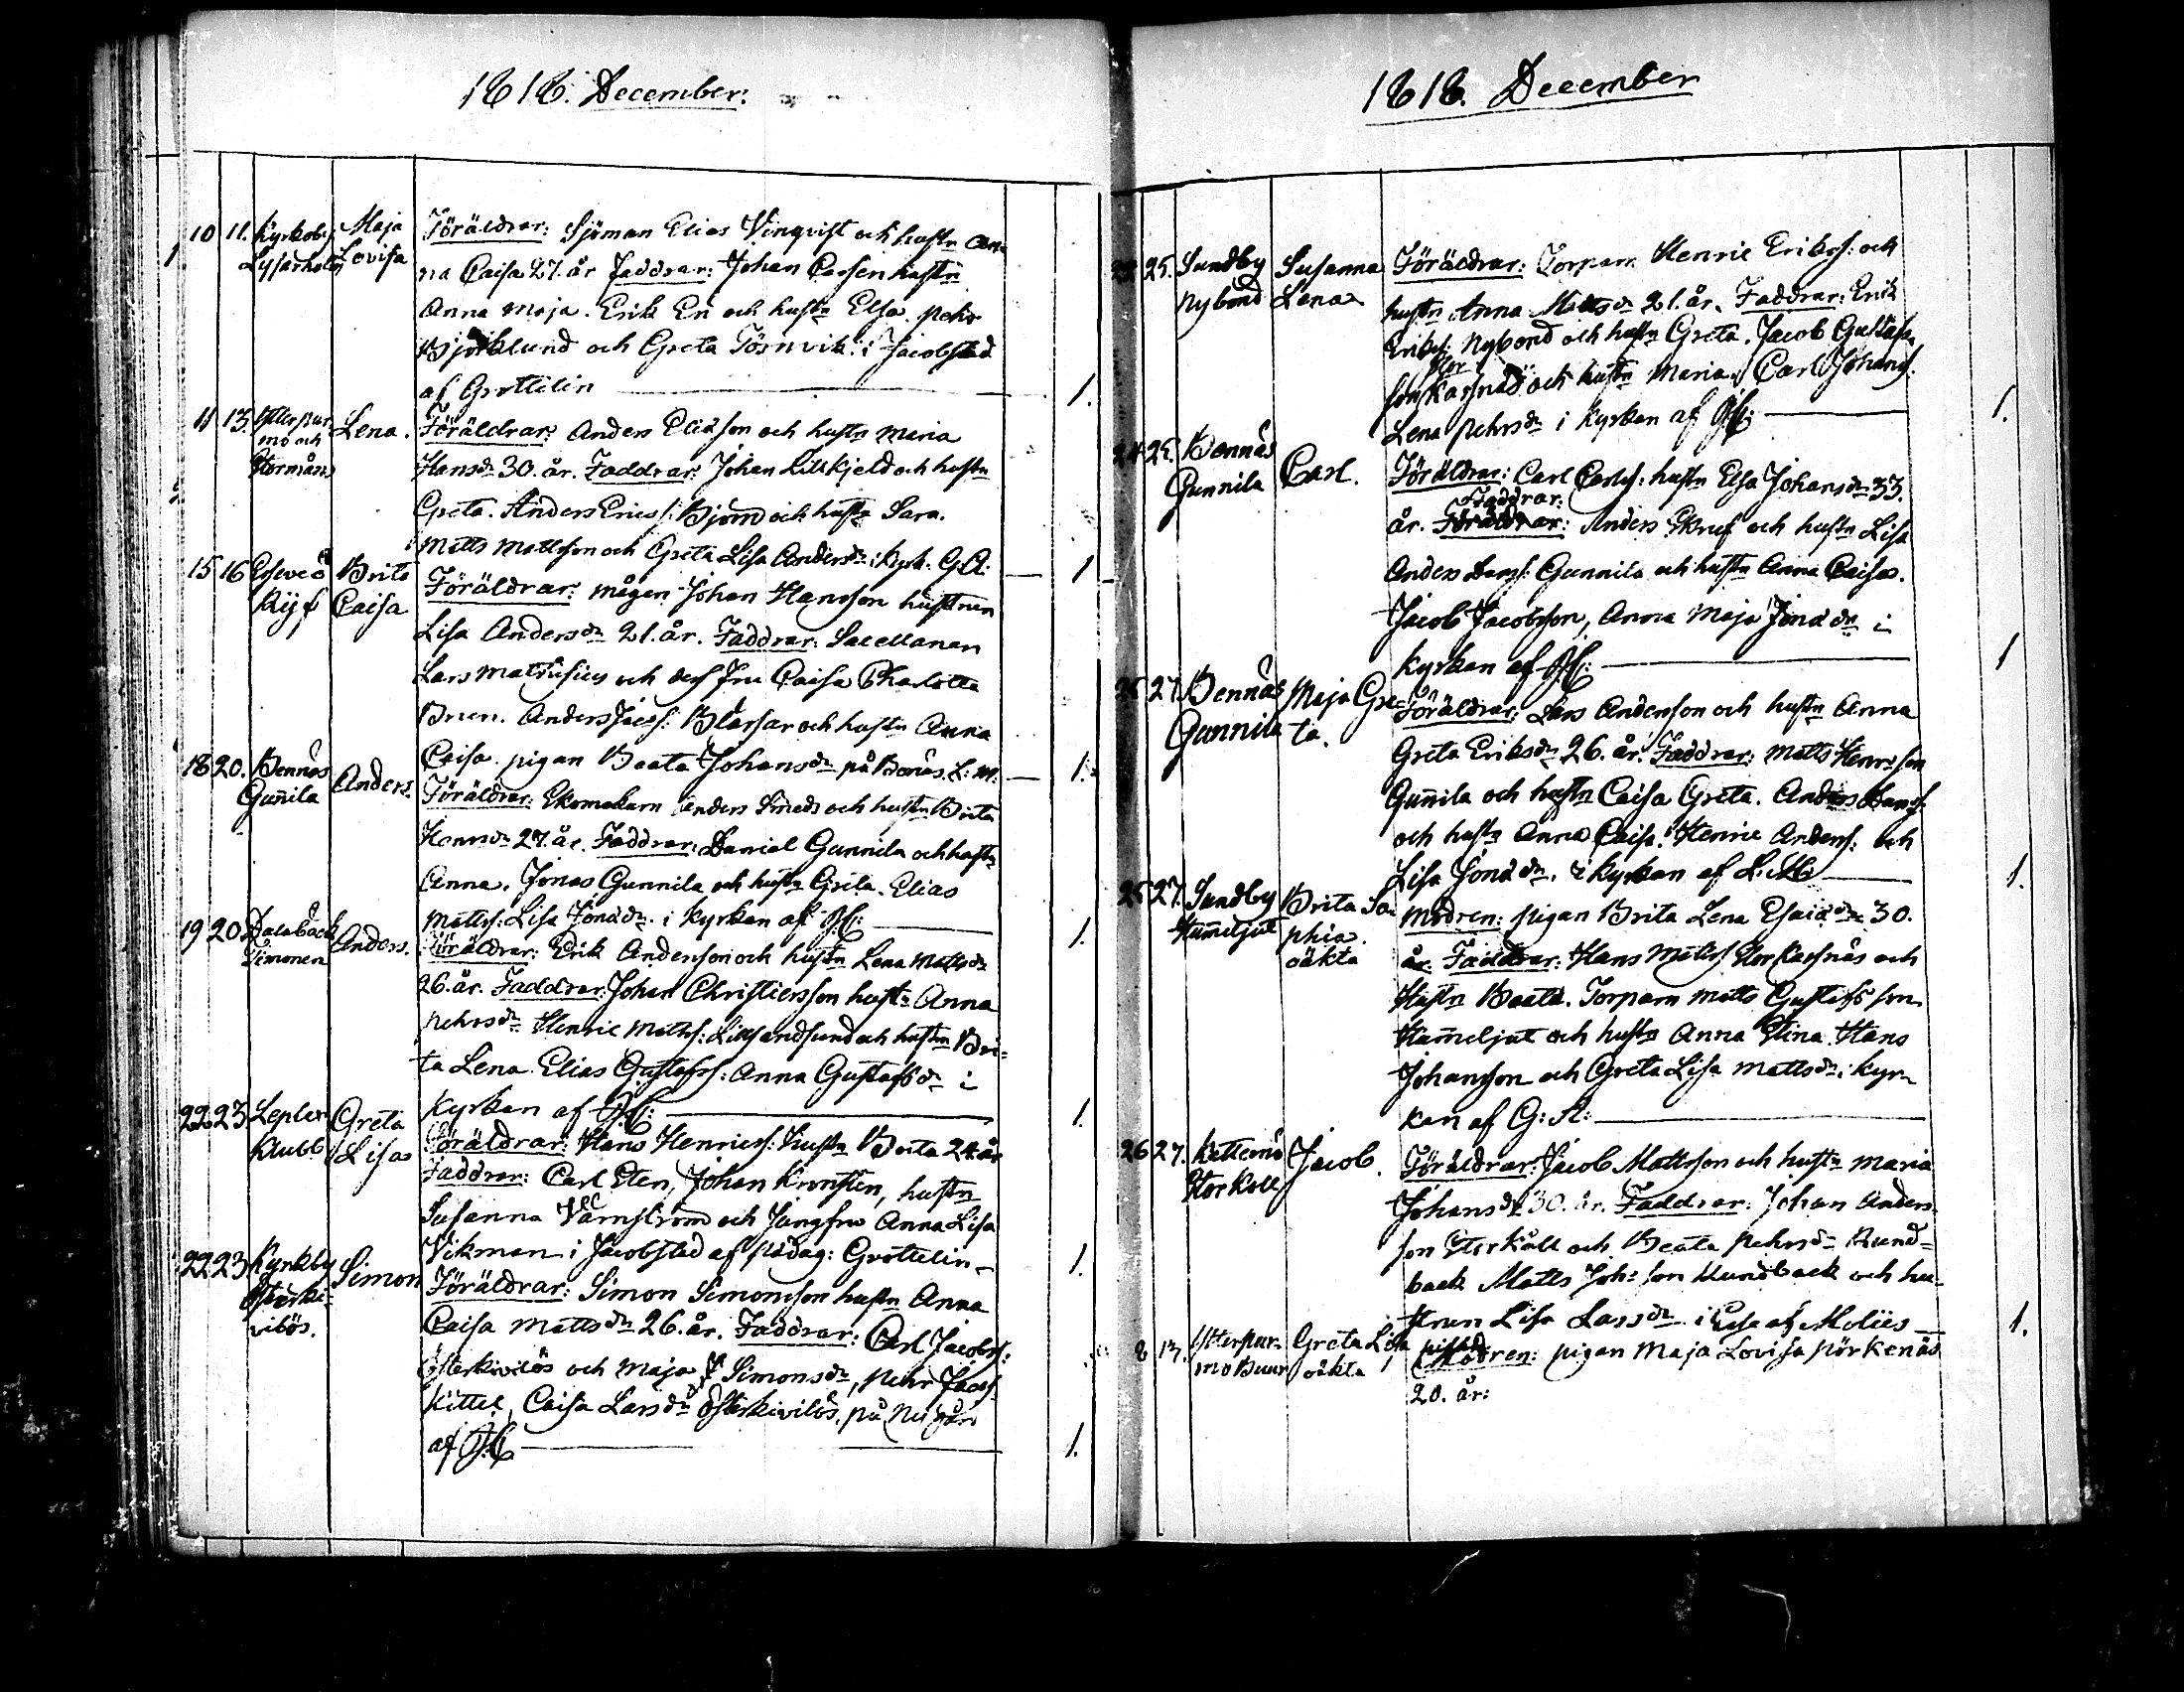 1818. December:
10 11. Kyrkoby Maja Föräldrar: Sjöman Elias Vinqvist och hustn An-
Lovisa na Caisa 27. år Faddrar: Johan Carsen hustn
Anna Maja. Erik En och hustn Elsa. Pehr
Björklund och Greta Törnvik i Jacobstad
af Grottelin 1.
11 13. Ytterpur- Lena. Föräldrar: Anders Eliasson och hustn Maria
mo och Hansdr 30. år. Faddrar: Johan Lillkjeld och hustn
Stormåns Greta. Anders Erics: Björn och hustn Sara.
Matts Mattsson och Greta Lisa Andersdr i kyrk. G.A. 1
15 16 Esseveö Brita Föräldrar: mågen Johan Hansson hustrun
Caisa Lisa Andersdr 21. år. Faddrar: Sacellanen
Lars och dess fru Caisa Charlotta
Anders Jacss: och hustn Anna
Caisa. pigan Beata Johansdr på Benäs. L: M: 1.
18 20. Bennäs Anders. Föräldrar: Skomakarn Anders Smeds och hustn Brita
Gunnila Hansdr 27. år. Faddrar: Daniel Gunnila och hustn
Anna. Jonas Gunnila och hustn Greta. Elias
Mattss: Lisa Jonædr. i kyrkan af 1.
19 20. Dalabäck Anders. Föräldrar: Erik Andersson och hustn Lena Mattsdr
Simonen 26. år. Faddrar: Johan Christiersson hustn Anna
Pehrsdr Henric Mattss: Lillsandsund och hustn Bri-
ta Lena. Elias Gustafss: Anna Gustafsdr i
kyrkan af 1.
22 23 Leplax Greta Föräldrar: Hans Henricss: hustn Brita 24 år
Klubb Lisa Faddrar: Carl Sten, Johan Kronsten, hustn
Susanna Värnström och Jungfru Anna Lisa
Vikman i Jacobstad af pædag: Grottelin 1.
22 23 Kyrkby Simon Föräldrar: Simon Simonsson hustn Anna
Österki- Caisa Mattsdr 26. år. Faddrar: Carl Jacobss:
vilös. Österkivilös och Maja Simonsdr, Pehr Jacss.
Kittel, Caisa Larsdr Österkivilös. på Nygård
af 1.
1818. December
25. Sundby Susanna Föräldrar: Torparn Henric Erikss: och
Nybond Lena hustn Anna Mattsdr 21. år. Faddrar: Erik
Erikss: Nybond och hustn Greta. Jacob Gustafs-
son Stor Kassnäs och hustn Maria Carl Johanss.
Lena Pehrsdr i kyrkan af 1.
24 25. Bennäs Carl. Föräldrar: Carl Carlss: hustn Elsa Johansdr 33.
Gunnila år. Faddrar: Anders och hustn Lisa
Anders Larss: Gunnila och hustn Anna Caisa.
Jacob Jacobsson, Anna Maja Jonædr i
kyrkan af 1
27. Bennäs Maja Gre- Föräldrar: Lars Andersson och hustn Anna
Gunnila ta. Greta Eriksdr 26. år. Faddrar: Matts Henrsson
Gunnila och hustn Caisa Greta. Anders Larss:
och hustn Anna Caisa. Henric Anderss: och
Lisa Jonædr. i kyrkan af L. M: 1.
27. Sundby Brita So- Modren: pigan Brita Lena Esaiædr 30.
Hummeljut phia. år. Faddrar: Hans Mattss Stor Kassnäs och
oäkta Hustn Beata. Torparn Matts Gustafsson
Hummeljut och hustn Anna Stina. Hans
Johansson och Greta Lisa Mattsdr i kyr-
kan af G: A:
26 27. Kattemo Jacob. Föräldrar: Jacob Mattsson och hustn Maria
Storkåll Johansdr 30. år. Faddrar: Johan Anders-
son Storkåll och Beata Pehrsdr Sund-
back Matts Johsson Sundback och hu-
strun Lisa Larsdr i Esse af Molis 1.
8 13. Ytterpur- Greta Lisa Modren: pigan Maja Lovisa Pörkenäs
mo Buur oäkta 20. år: